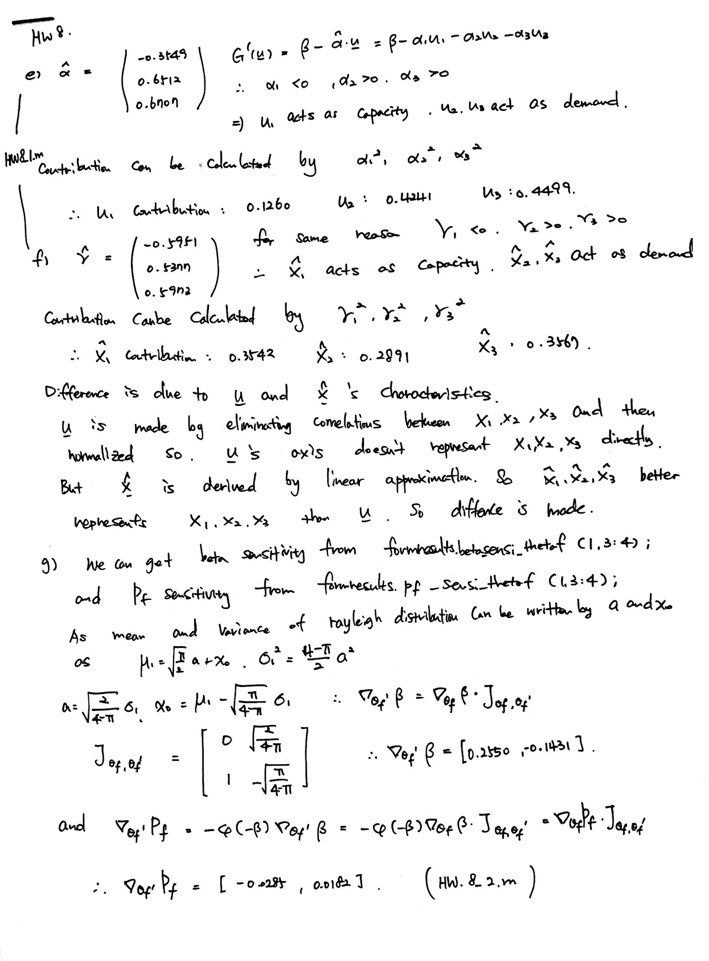 HW 8.
e) α̂ = ( -0.3549 0.6512 0.6707 ) G'(u) = β - α̂·u = β - α₁u₁ - α₂u₂ - α₃u₃
∴ α₁ <0 , α₂ >0 . α₃ >0
⇒ u₁ acts as capacity . u₂. u₃ act as demand.
HW8.1.m
Contribution can be calculated by α₁², α₂², α₃²
∴ u₁ contribution : 0.1260 u₂ : 0.4241 u₃ : 0.4499.
f) γ̂ = ( -0.5951 0.5377 0.5973 ) for same reason γ₁ <0 . γ₂ >0 . γ₃ >0
∴ X̂₁ acts as capacity . X̂₂, X̂₃ act as demand
Contribution can be calculated by γ₁², γ₂² , γ₃²
∴ X̂₁ contribution : 0.3542 X̂₂ : 0.2891 X̂₃ : 0.3567 .
Difference is due to u and X̂ 's characteristics.
u is made by eliminating correlations between X₁, X₂, X₃ and then
normalized so . u's axis doesn't represent X₁, X₂, X₃ directly.
But X̂ is derived by linear approximation. So X̂₁, X̂₂, X̂₃ better
represents X₁. X₂. X₃ than u . So diffence is made.
g) we can get beta sensitivity from formresults.beta_sensi_thetaf (1,3:4) ;
and Pf sensitivity from formresults. pf_sensi_thetaf (1,3:4) ;
As mean and variance of rayleigh distribution can be written by a and x₀
as μ₁ = √(π/2) a + x₀ . σ₁² = (4-π)/2 a²
a = √(2/(4-π)) σ₁ x₀ = μ₁ - √(π/(4-π)) σ₁ ∴ ∇θf' β = ∇θf β · Jθf,θf'
Jθf,θf' = [ 0 √(2/(4-π)) 1 -√(π/(4-π)) ] ∴ ∇θf' β = [0.2550 , -0.1431] .
and ∇θf' Pf = -φ(-β) ∇θf' β = -φ(-β) ∇θf β · Jθf,θf' = ∇θf Pf · Jθf,θf'
∴ ∇θf' Pf = [ -0.0285 , 0.0182 ] . ( HW. 8_2.m )